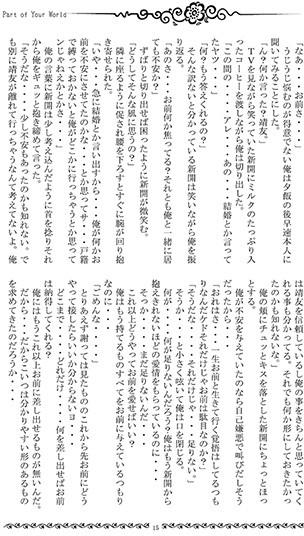 Part of Your World
「なぁ・・お前さ・・」
うじうじ悩むのが得意でない俺は夕飯の後早速本人に
聞いてみることにした。
「ん？何か言ったか靖友」
TVを見ながら笑っていた新開にミルクのたっぷり入
ったコーヒーを渡しながら俺は切り出した。
「この間の・・・アレ・・あの・・結婚とか言って
たヤツ・・」
「何？もう答えくれるの？」
そんな訳ないと分かっている新開は笑いながら俺を振
り返る。
「あのな・・お前何か焦ってる？それとも俺と一緒に居
ても不安か？」
ずばりと切り出せば困ったように新開が微笑む。
「どうしてそんな風に思うの？」
隣に座るように促され腰を下ろすとすぐに腕が回り抱
き寄せられた。
「いや・・急に結婚とか言い出すから・・俺が何かお
前を不安にさせたかな・・とか思ってサ・・戸籍
で縛っておかないと俺がどこかに行っちゃうとか思って
ンじゃねえかとか・・」
俺の言葉に新開は少し考え込んだように首を捻りそれ
から俺をギュッと抱き締めて言った。
「そうだな・・・少し不安もあったのかも知れない。で
も別に靖友が離れて行っちゃうなんて考えてないよ。俺
は靖友を信頼しているし俺の事をきちんと思っていてく
れる事も分かってる。それでも何か形にしておきたかっ
たのかも知れないな。」
俺の頬にチュッとキスを落とした新開にちょっとほっ
とする。
俺が不安を与えていたのなら自己嫌悪で叫びだしそう
だったから・・
「おれはさ・・一生お前と生きて行く覚悟はしてるつも
りなんだケドそれだけじゃお前は駄目なのか？」
「そうだな・・それだけじゃ・・・足りない。」
そっか・・と小さく呟いて俺は口を閉じる。
何が・・・何が足りないんだろう？俺はもう新開から
抱えきれないほどの愛情をもらっているのに・・
そっか・・まだ足りないんだ・・
これ以上どうやってお前を愛せばいい？
俺はもう持てるものすべてをお前に与えているつもり
なのに・・・
「ごめんな・・」
とりあえず謝っては見たもののこれから先お前にどう
やって接したらいいか分からないヨ・・
どこまで・・・どれだけ・・・・何を差し出せばお前
は納得してくれる？
俺にはもうこれ以上お前に差し出せるものが無いんだ。
だから・・だからこいつは分かりやすい形のあるもの
を求めてきたのだろうか・・・
15